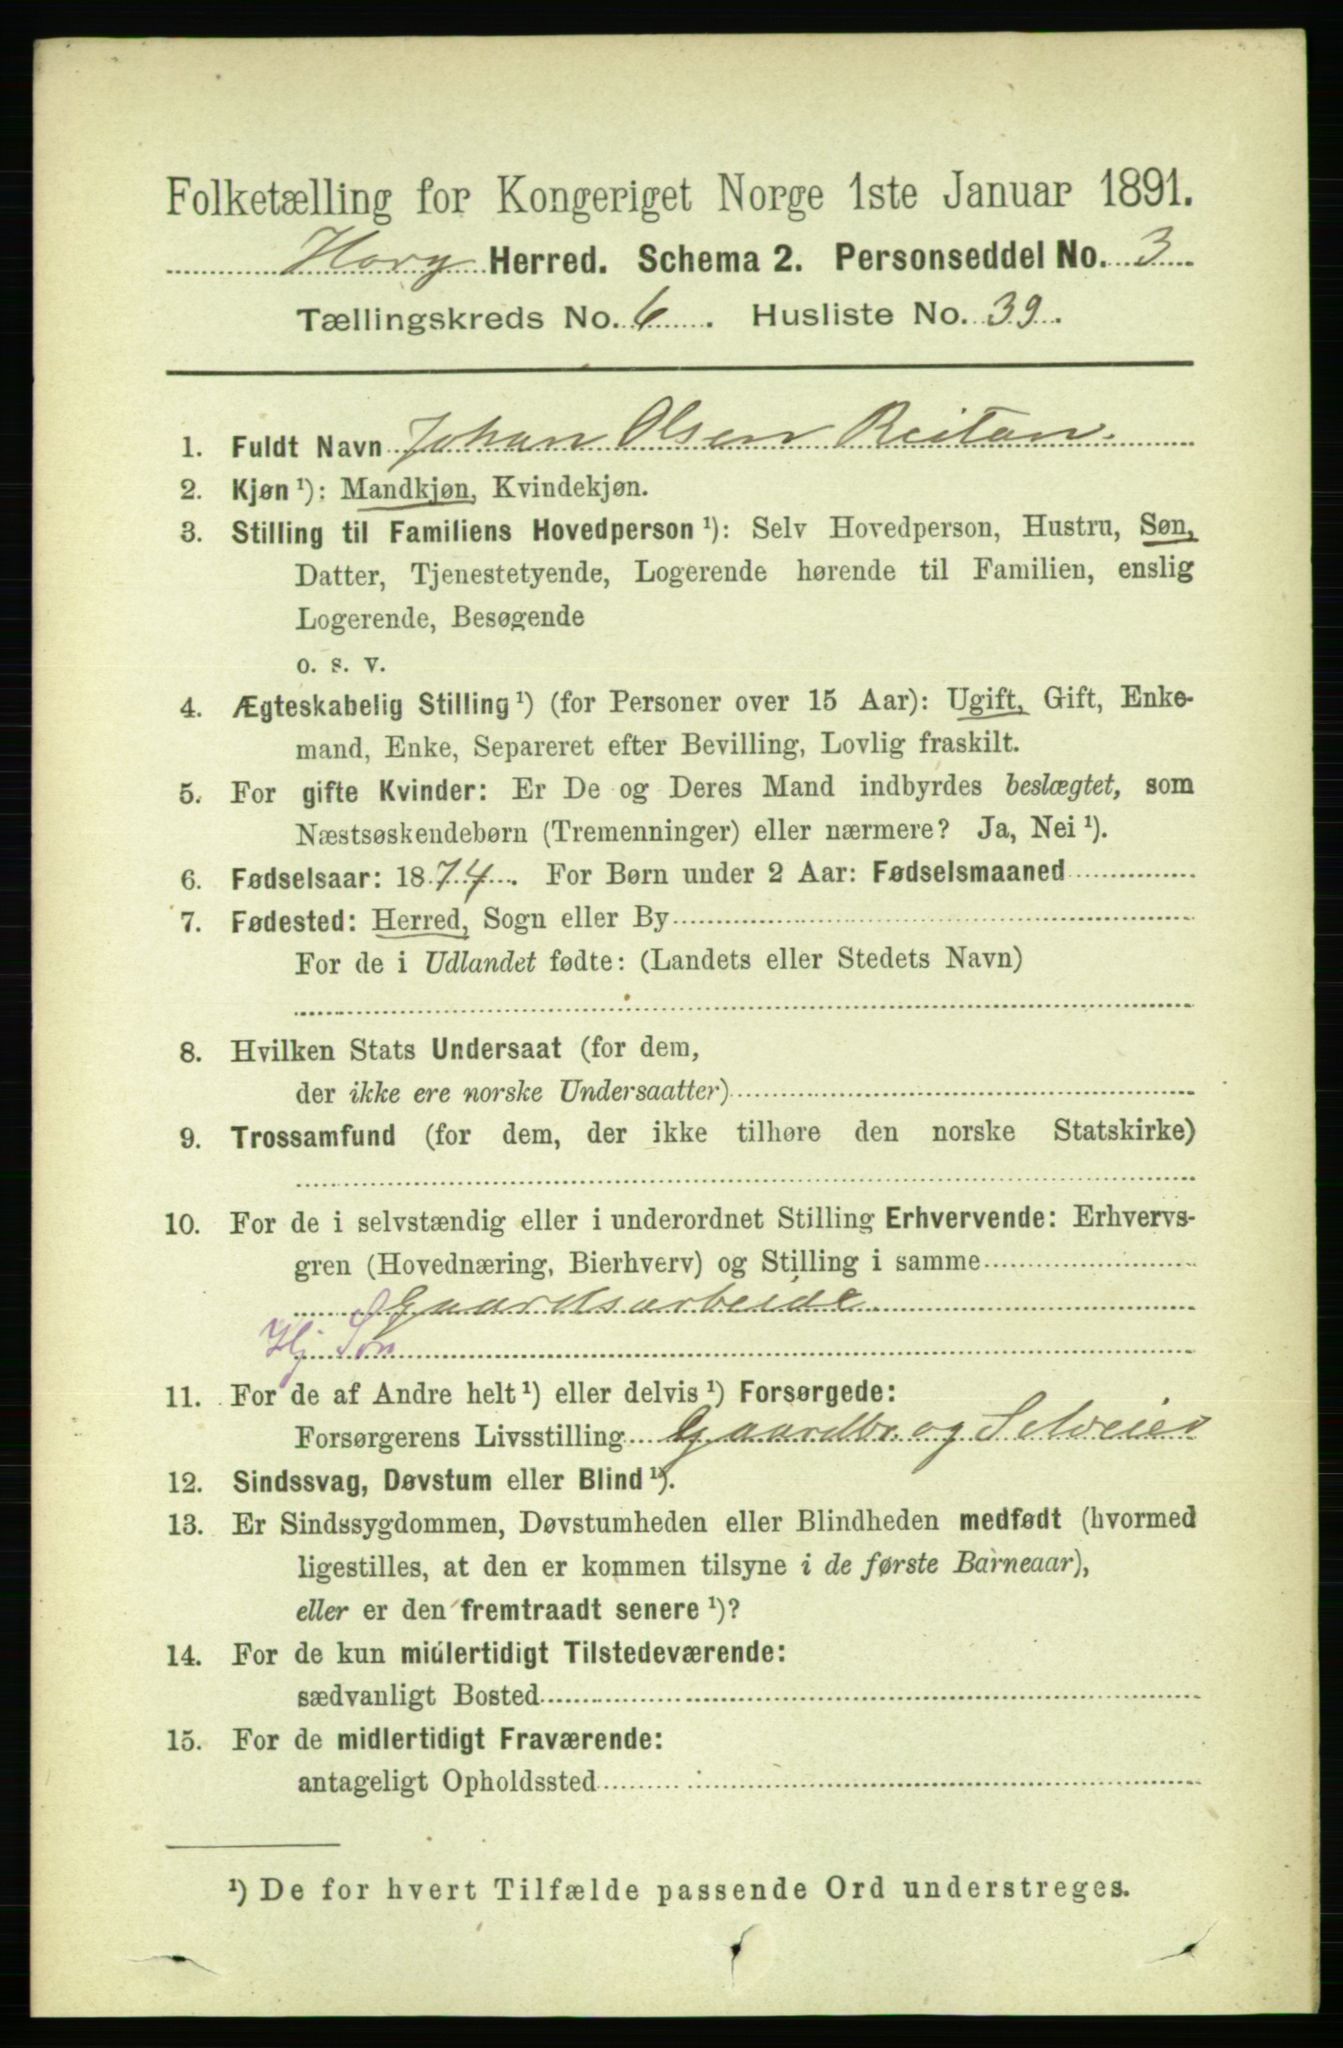 Folketælling for Kongeriget Norge 1ste Januar 1891.
Horg Herred. Schema 2. Personseddel No. 3
Tællingskreds No. 6. Husliste No. 39.
1. Fuldt Navn Johan Olsen Reitan.
2. Kjøn ¹): Mandkjøn, Kvindekjøn.
3. Stilling til Familiens Hovedperson ¹): Selv Hovedperson, Hustru, Søn,
Datter, Tjenestetyende, Logerende hørende til Familien, enslig
Logerende, Besøgende
o. s. v.
4. Ægteskabelig Stilling ¹) (for Personer over 15 Aar): Ugift, Gift, Enke-
mand, Enke, Separeret efter Bevilling, Lovlig fraskilt.
5. For gifte Kvinder: Er De og Deres Mand indbyrdes beslægtet, som
Næstsøskendebørn (Tremenninger) eller nærmere? Ja, Nei ¹).
6. Fødselsaar: 1874. For Børn under 2 Aar: Fødselsmaaned
7. Fødested: Herred, Sogn eller By
For de i Udlandet fødte: (Landets eller Stedets Navn)
8. Hvilken Stats Undersaat (for dem,
der ikke ere norske Undersaatter)
9. Trossamfund (for dem, der ikke tilhøre den norske Statskirke)
10. For de i selvstændig eller i underordnet Stilling Erhvervende: Erhvervs-
gren (Hovednæring, Bierhverv) og Stilling i samme
Gaardsarbeide
Hj Søn
11. For de af Andre helt ¹) eller delvis ¹) Forsørgede:
Forsørgerens Livsstilling Gaardbr. og Selveier
12. Sindssvag, Døvstum eller Blind ¹).
13. Er Sindssygdommen, Døvstumheden eller Blindheden medfødt (hvormed
ligestilles, at den er kommen tilsyne i de første Barneaar),
eller er den fremtraadt senere ¹)?
14. For de kun midlertidigt Tilstedeværende:
sædvanligt Bosted
15. For de midlertidigt Fraværende:
antageligt Opholdssted
¹) De for hvert Tilfælde passende Ord understreges.